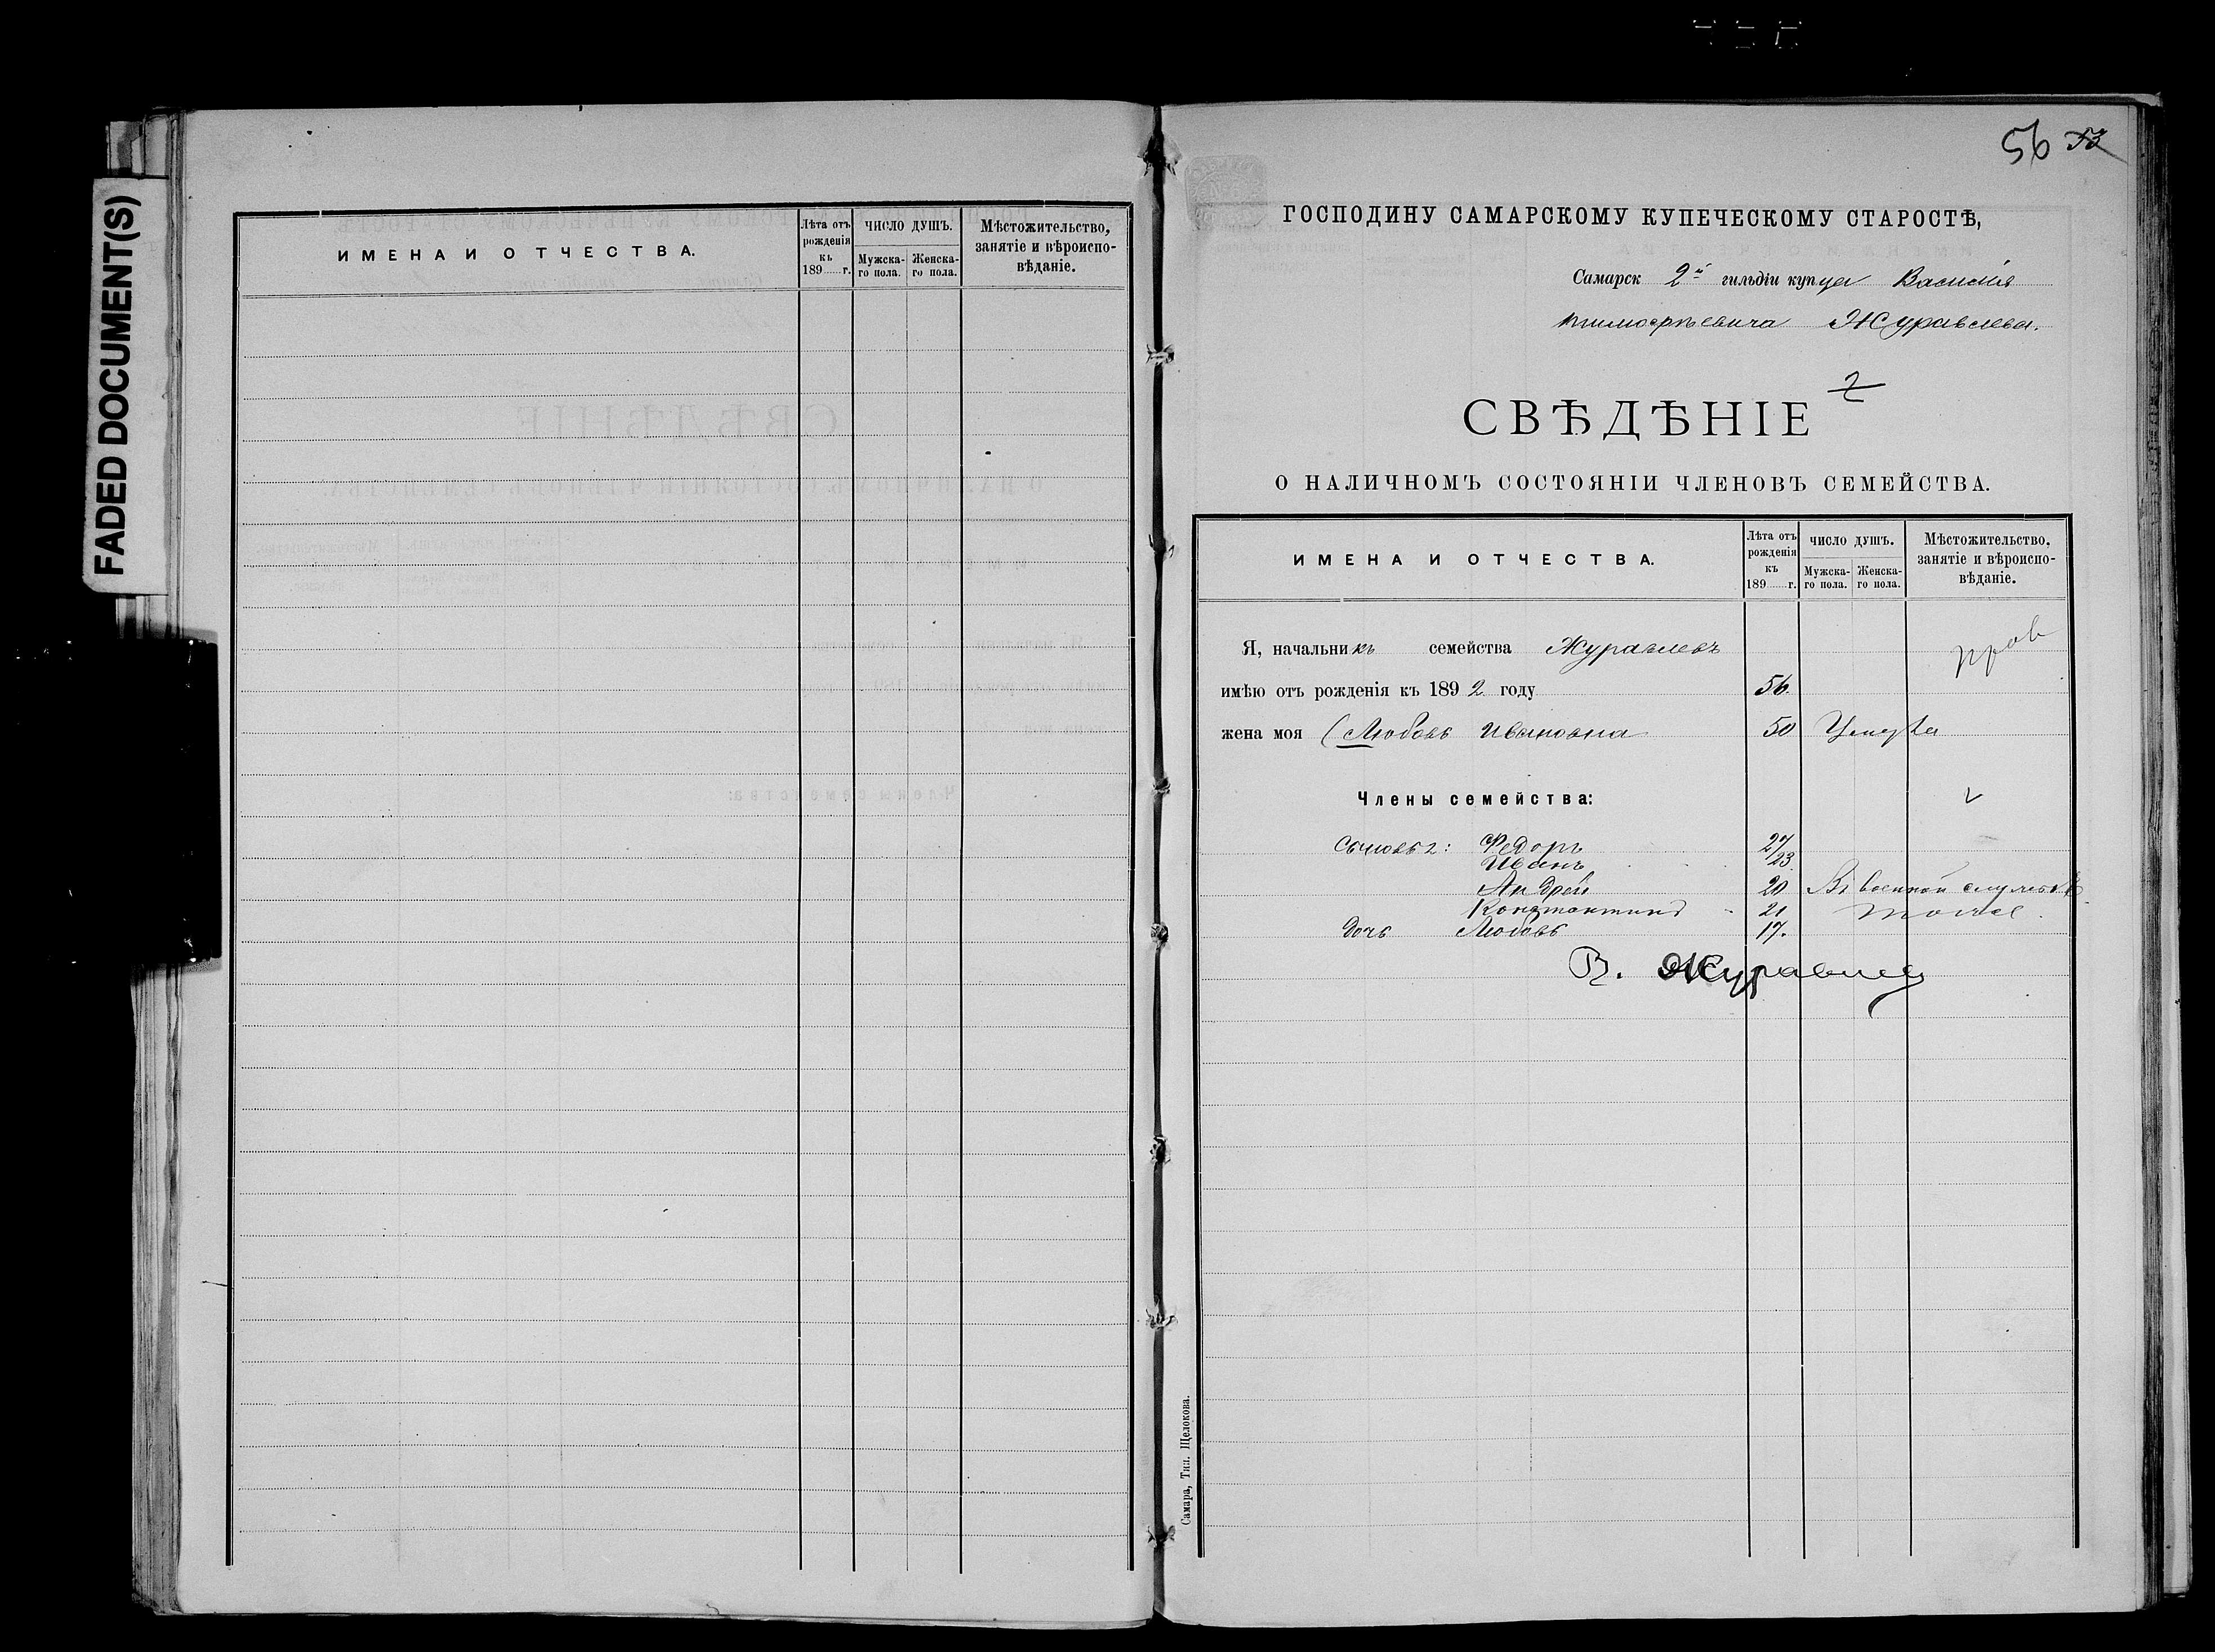 FADED DOCUMENT(S)
ИМЕНА И ОТЧЕСТВА.
Лѣта отъ рожденія къ 189 г.
ЧИСЛО ДУШЪ.
Мужска-го пола.
Женска-го пола.
Мѣстожительство, занятіе и вѣроиспо-вѣданіе.
56 53
ГОСПОДИНУ САМАРСКОМУ КУПЕЧЕСКОМУ СТАРОСТѢ,
Самарск 2й гильдіи купца Василія
Тимофѣевича Журавлева.
СВѢДѢНІЕ
О НАЛИЧНОМЪ СОСТОЯНІИ ЧЛЕНОВЪ СЕМЕЙСТВА.
ИМЕНА И ОТЧЕСТВА.
Лѣта отъ рожденія къ 189 г.
ЧИСЛО ДУШЪ.
Мужска-го пола.
Женска-го пола.
Мѣстожительство, занятіе и вѣроиспо-вѣданіе.
Я, начальникъ семейства Журавлевъ прав
имѣю отъ рожденія къ 1892 году 56.
жена моя (Любовь Ивановна 50
Члены семейства:
Сыновья: Федоръ 27
Иванъ 23
Андрей 20 Въ военной службѣ
Константинъ 21 тоже
дочь Любовь 17.
В. Журавлев
Самара, Тип. Щелокова.